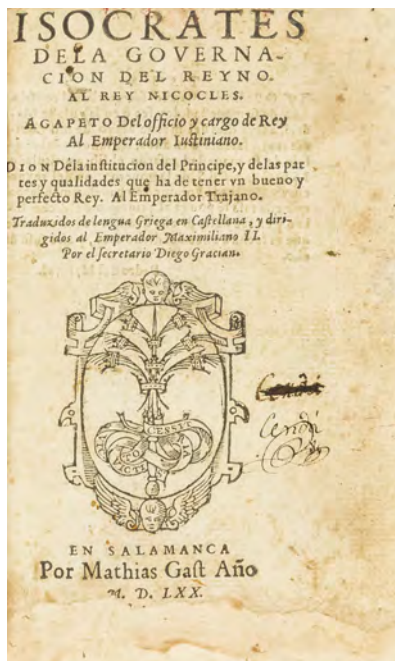 ISOCRATES
DELA GOVERNA-
CION DEL REYNO.
AL REY NICOCLES.
AGAPETO Del officio y cargo de Rey
Al Emperador Iuſtiniano.
DION Dela inſtitucion del Principe, y delas par
tes y qualidades que ha de tener vn bueno y
perfecto Rey. Al Emperador Trajano.
Traduzidos de lengua Griega en Caſtellana, y diri-
gidos al Emperador Maximiliano II.
Por el ſecretario Diego Gracian.
Cendri
EN SALAMANCA
Por Mathias Gaſt Año
M. D. LXX.